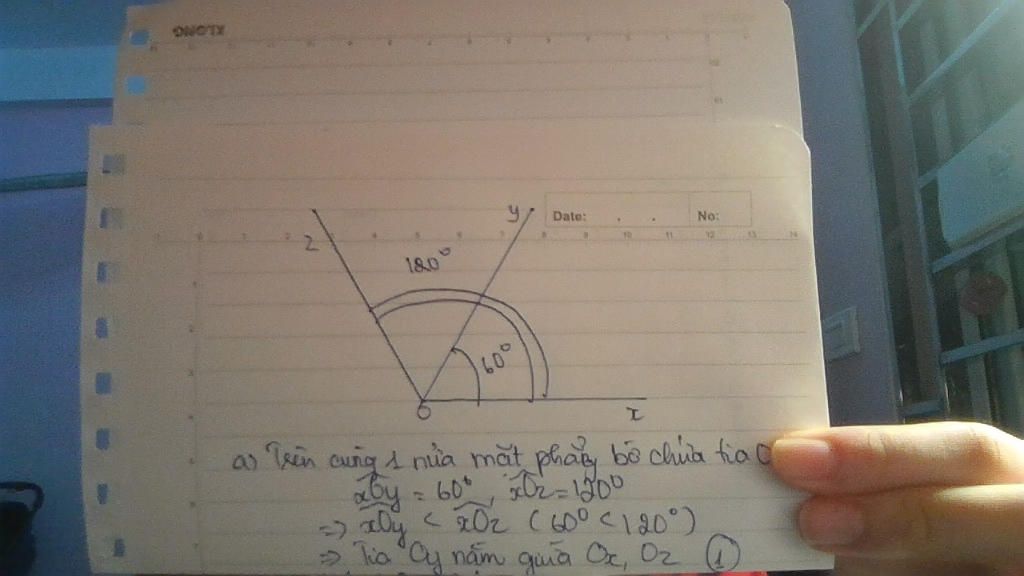 KLONG
Date: . . No:
z
y
120°
60°
O
x
a) Trên cùng 1 nửa mặt phẳng bờ chứa tia O
xOy = 60°, xOz = 120°
=> xOy < xOz (60° < 120°)
=> Tia Oy nằm giữa Ox, Oz ①